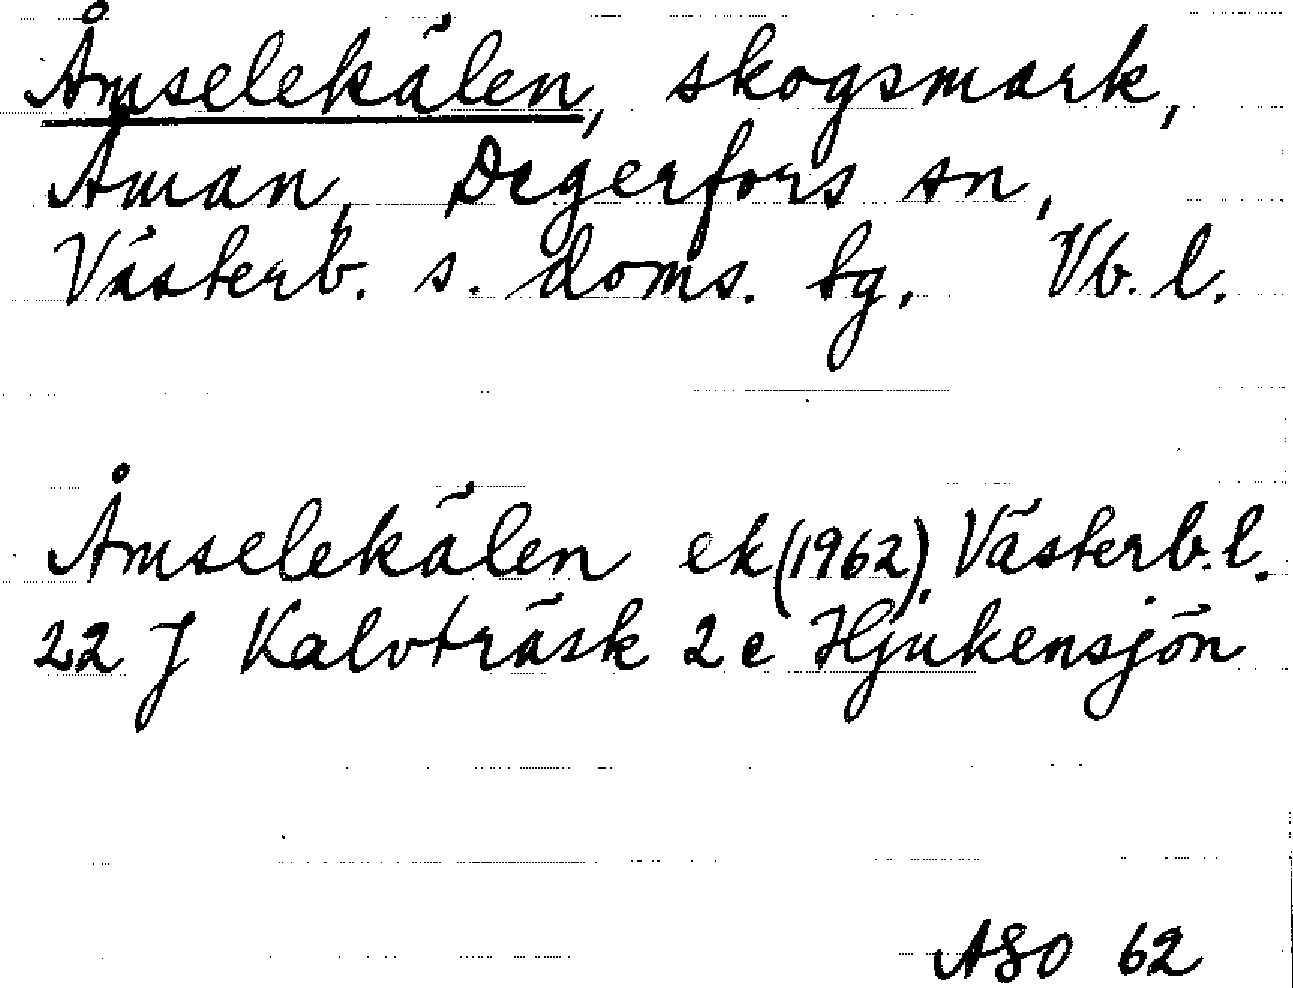 Åmselekälen, skogsmark,
Åman, Degerfors sn,
Västerb. s. doms. tg, Vb. l.
Åmselekälen ek (1962), Västerb. l.
22 J Kalvträsk 2 e Hjukensjön
ASO 62